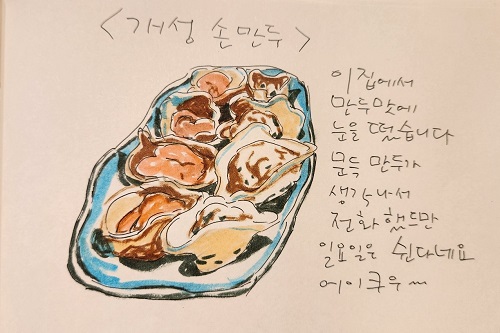 <개성 손만두>
이집에서
만두맛에
눈을 떴습니다
문득 만두가
생각나서
전화했드만
일요일은 쉰다네요
에이쿠우~